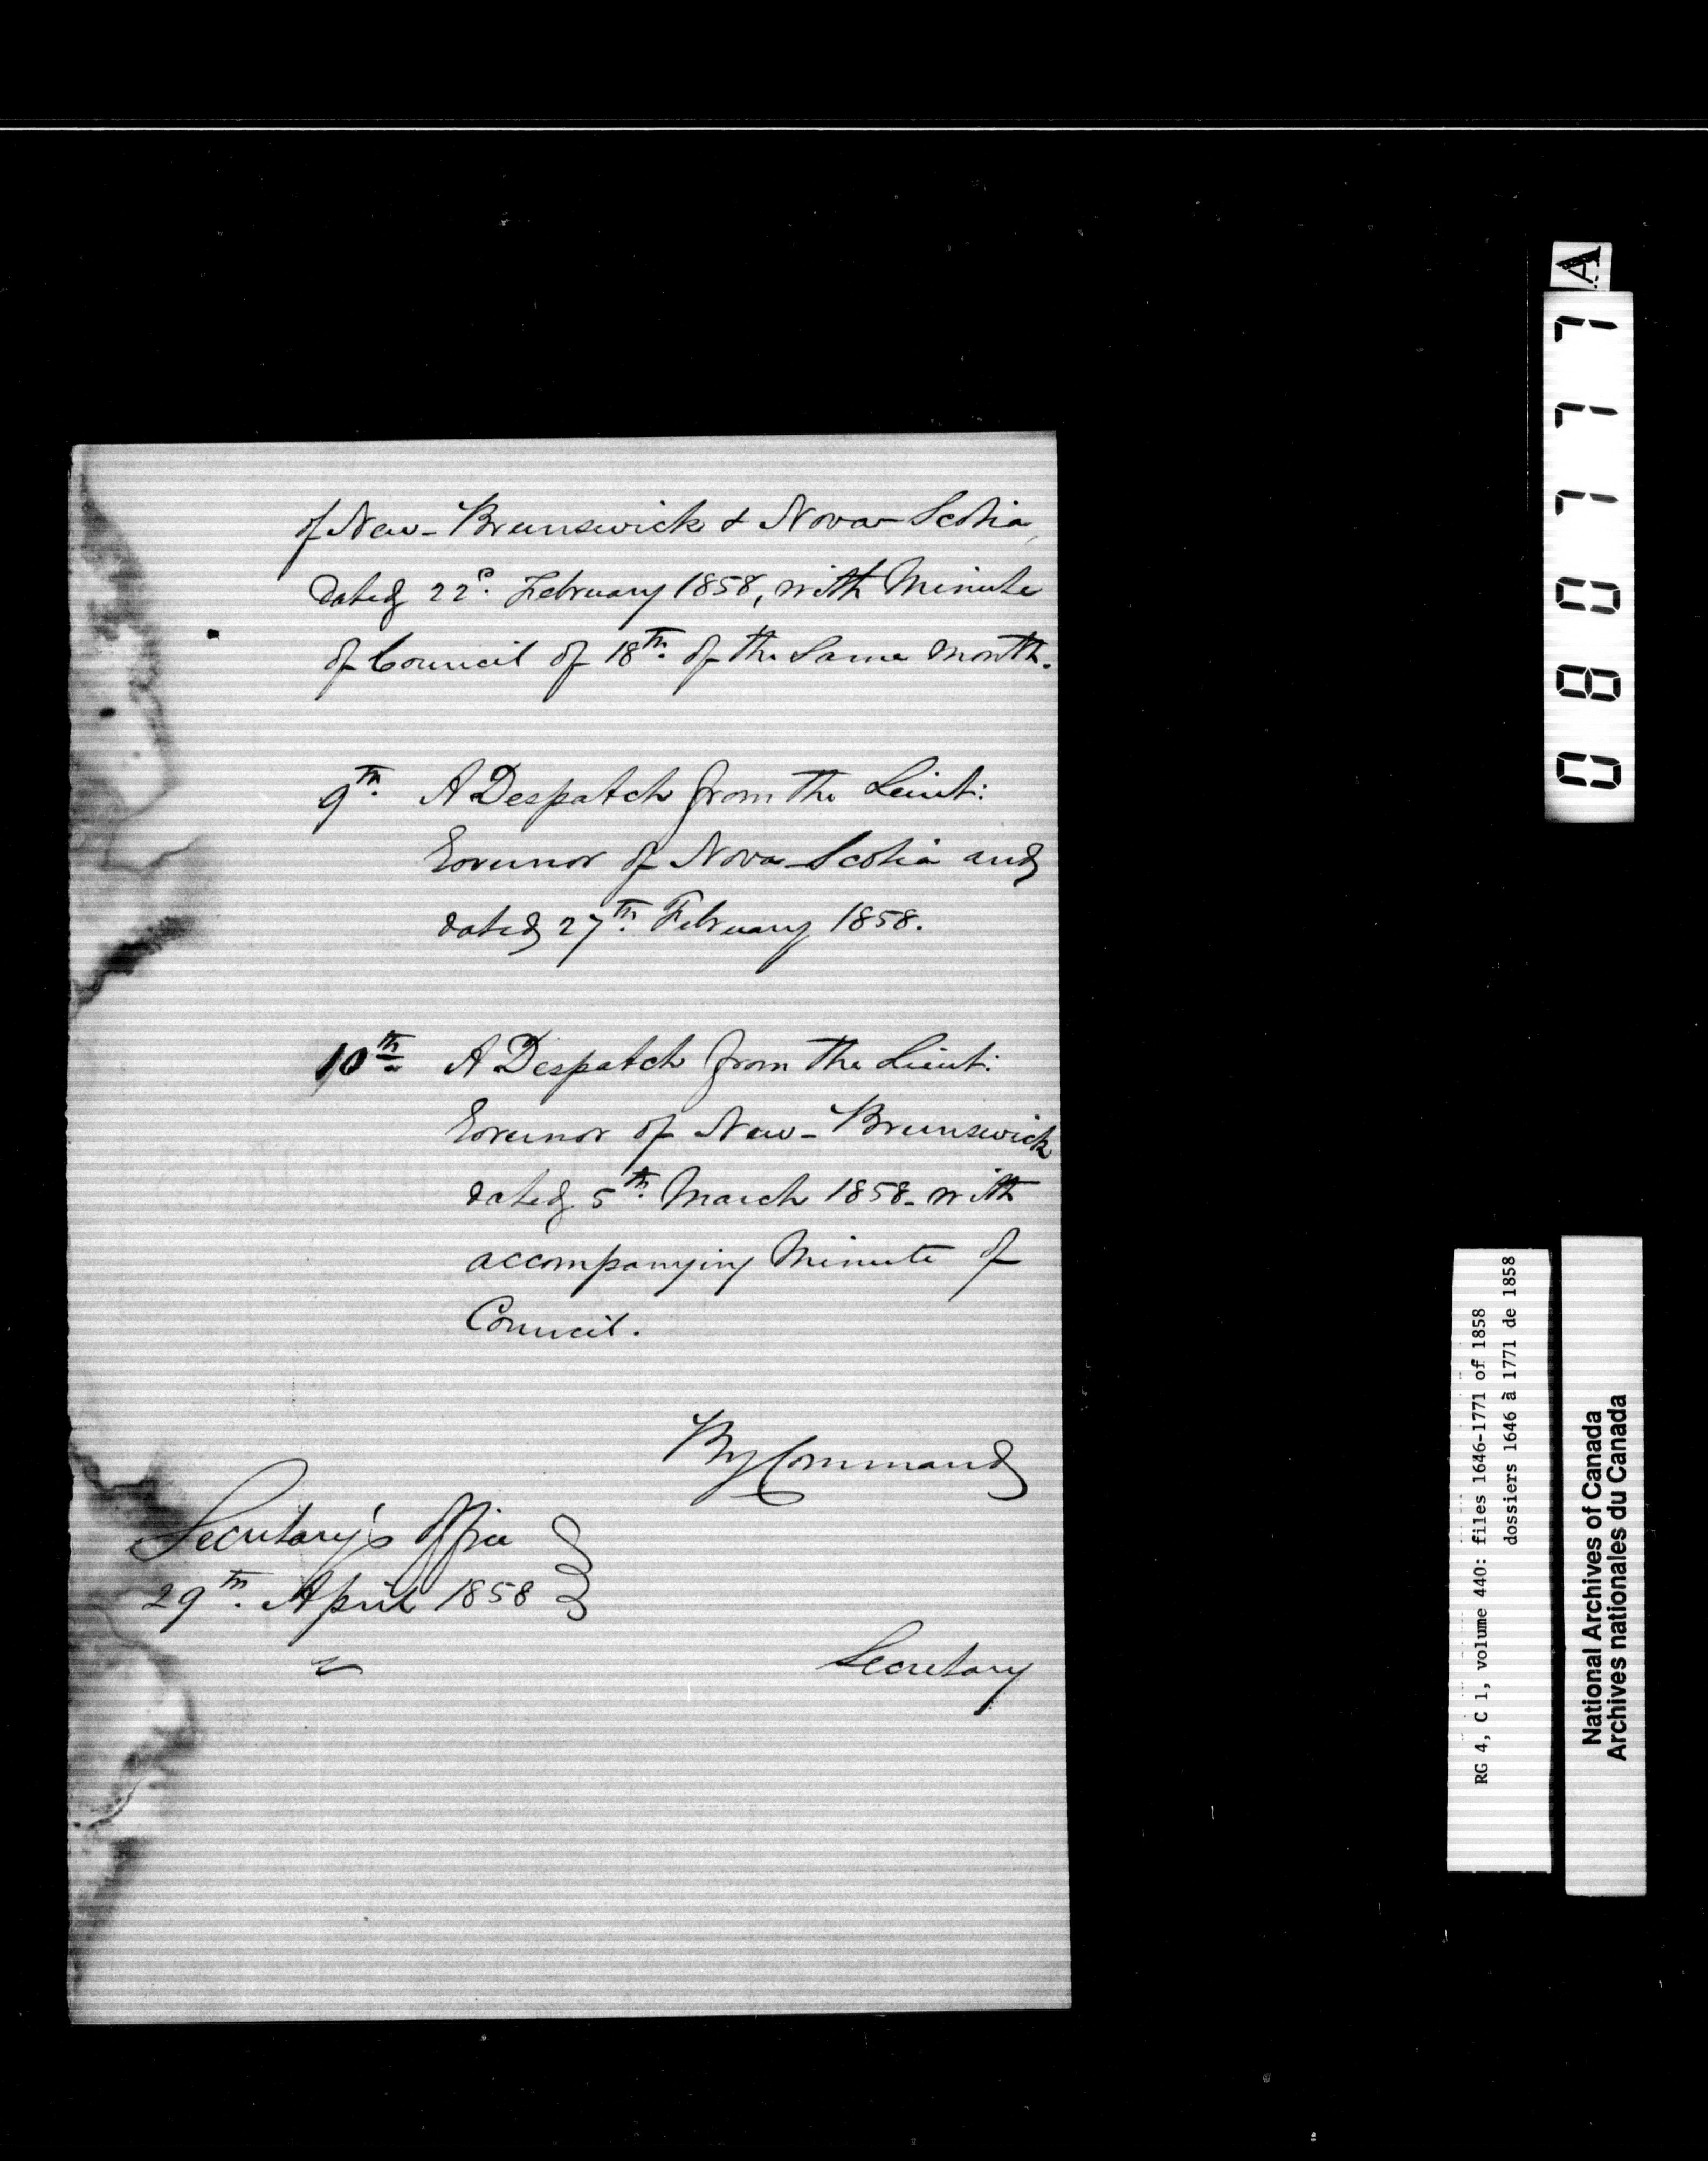 of New-Brunswick & Nova-Scotia,
dated 22d. February 1858, with Minute
of Council of 18th. of the Same Month.
9th. A Despatch from the Lieut:
Governor of Nova-Scotia and
dated 27th. February 1858.
10th A Despatch from the Lieut:
Governor of New-Brunswick
dated 5th. March 1858 - with
accompanying Minute of
Council.
By Command
Secretary's Office
29th. April 1858
Secretary
080777 A
RG 4, C 1, volume 440: files 1646-1771 of 1858
dossiers 1646 à 1771 de 1858
National Archives of Canada
Archives nationales du Canada